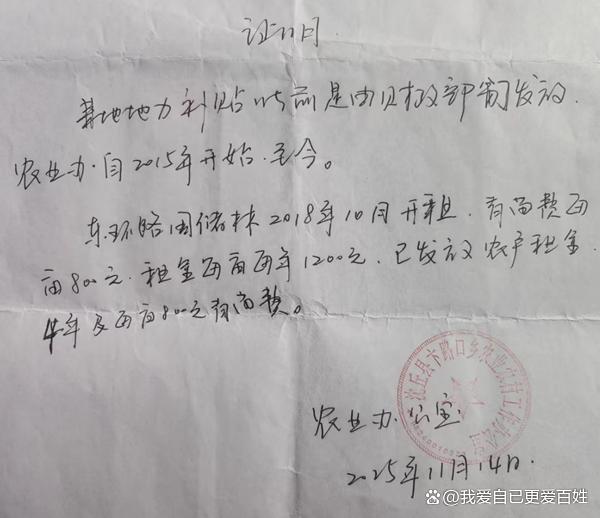 证明
基地地力补贴以前是由财政部门发放.
农业办.自2015年开始.至今。
东环路国储林2018年10月开租.青苗费每
亩800元.租金每亩每年1200元.已发放农户租金
4年及每亩800元青苗费。
沈丘县卞路口乡农业农村工作办公室
农业办公室
2025年11月14日.
@我爱自己更爱百姓